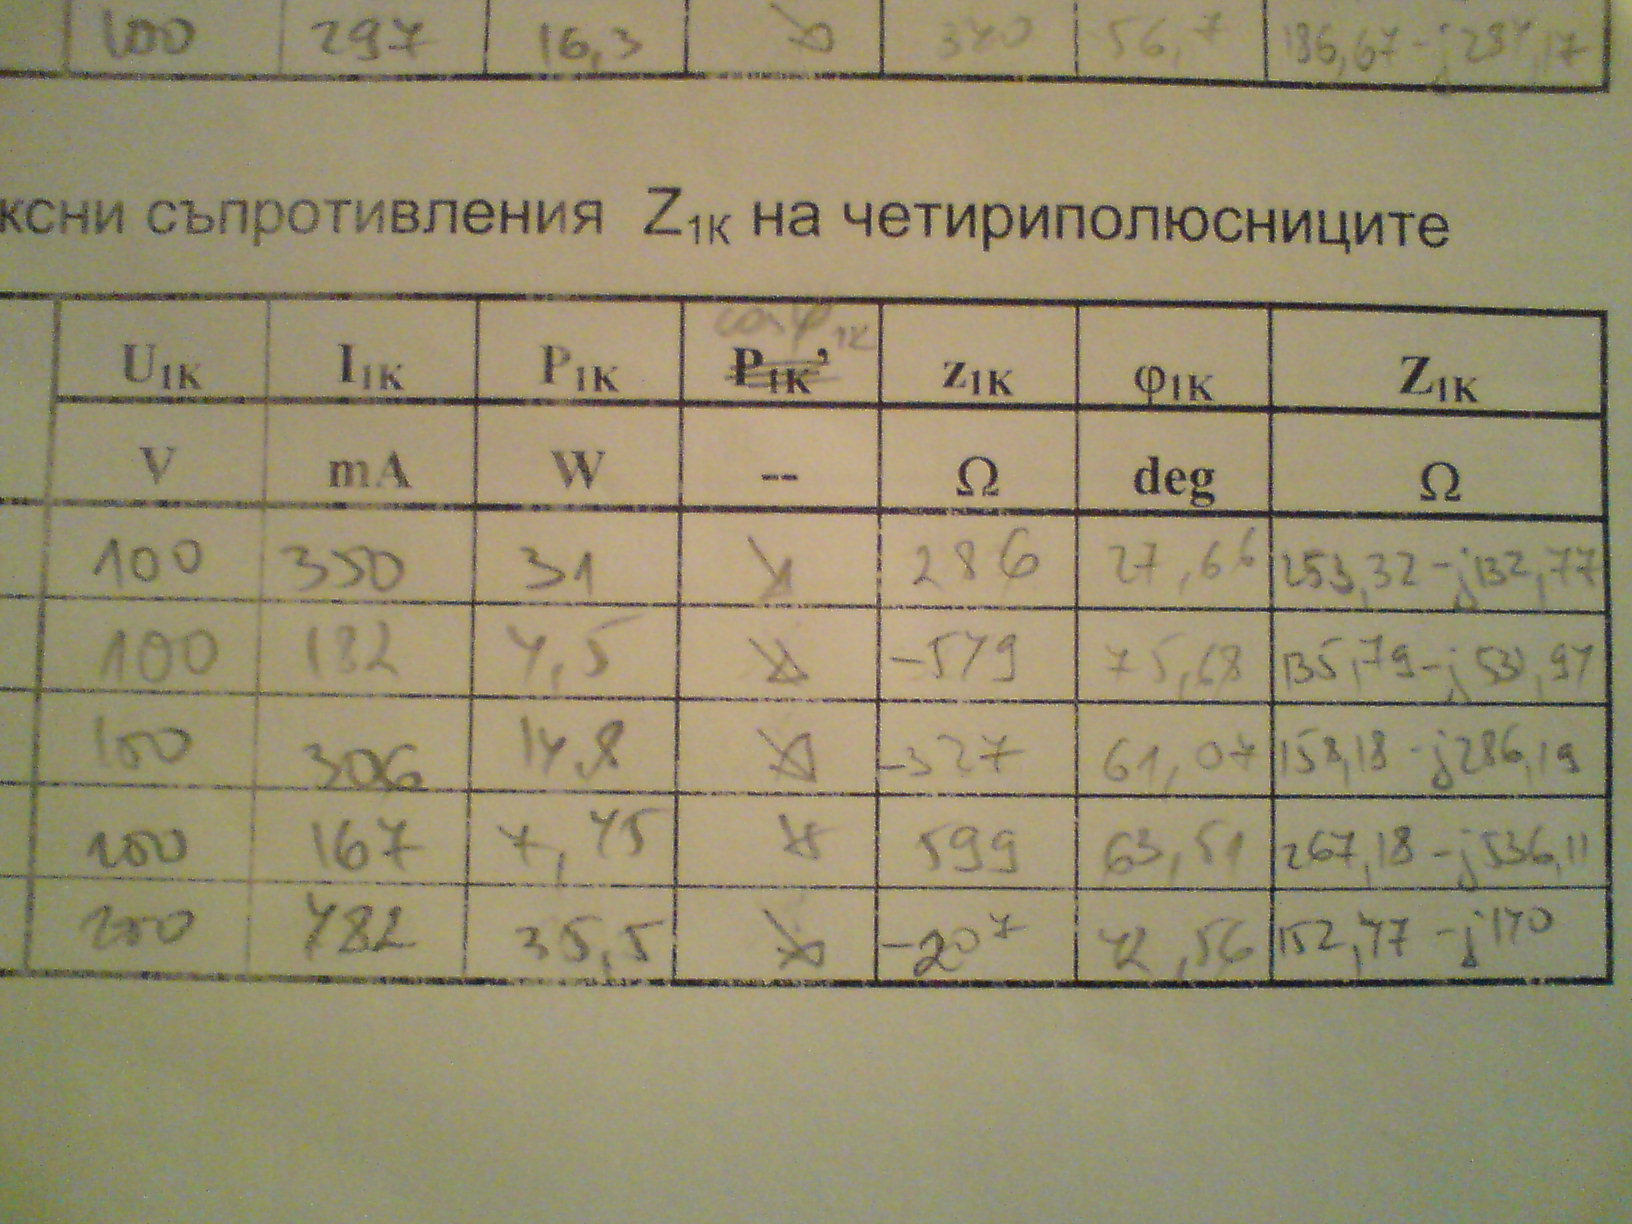 100 297 16,3 340 56,7 186,67-j284,17
ксни съпротивления Z1K на четириполюсниците
cosφ1K
U1K I1K P1K P1K' z1K φ1K Z1K
V mA W -- Ω deg Ω
100 350 31 286 27,66 253,32-j132,77
100 182 4,5 -549 75,68 135,79-j531,94
100 306 14,8 -327 61,07 158,18-j286,19
100 167 7,45 599 63,51 267,18-j536,11
100 482 35,5 -207 42,56 152,47-j140